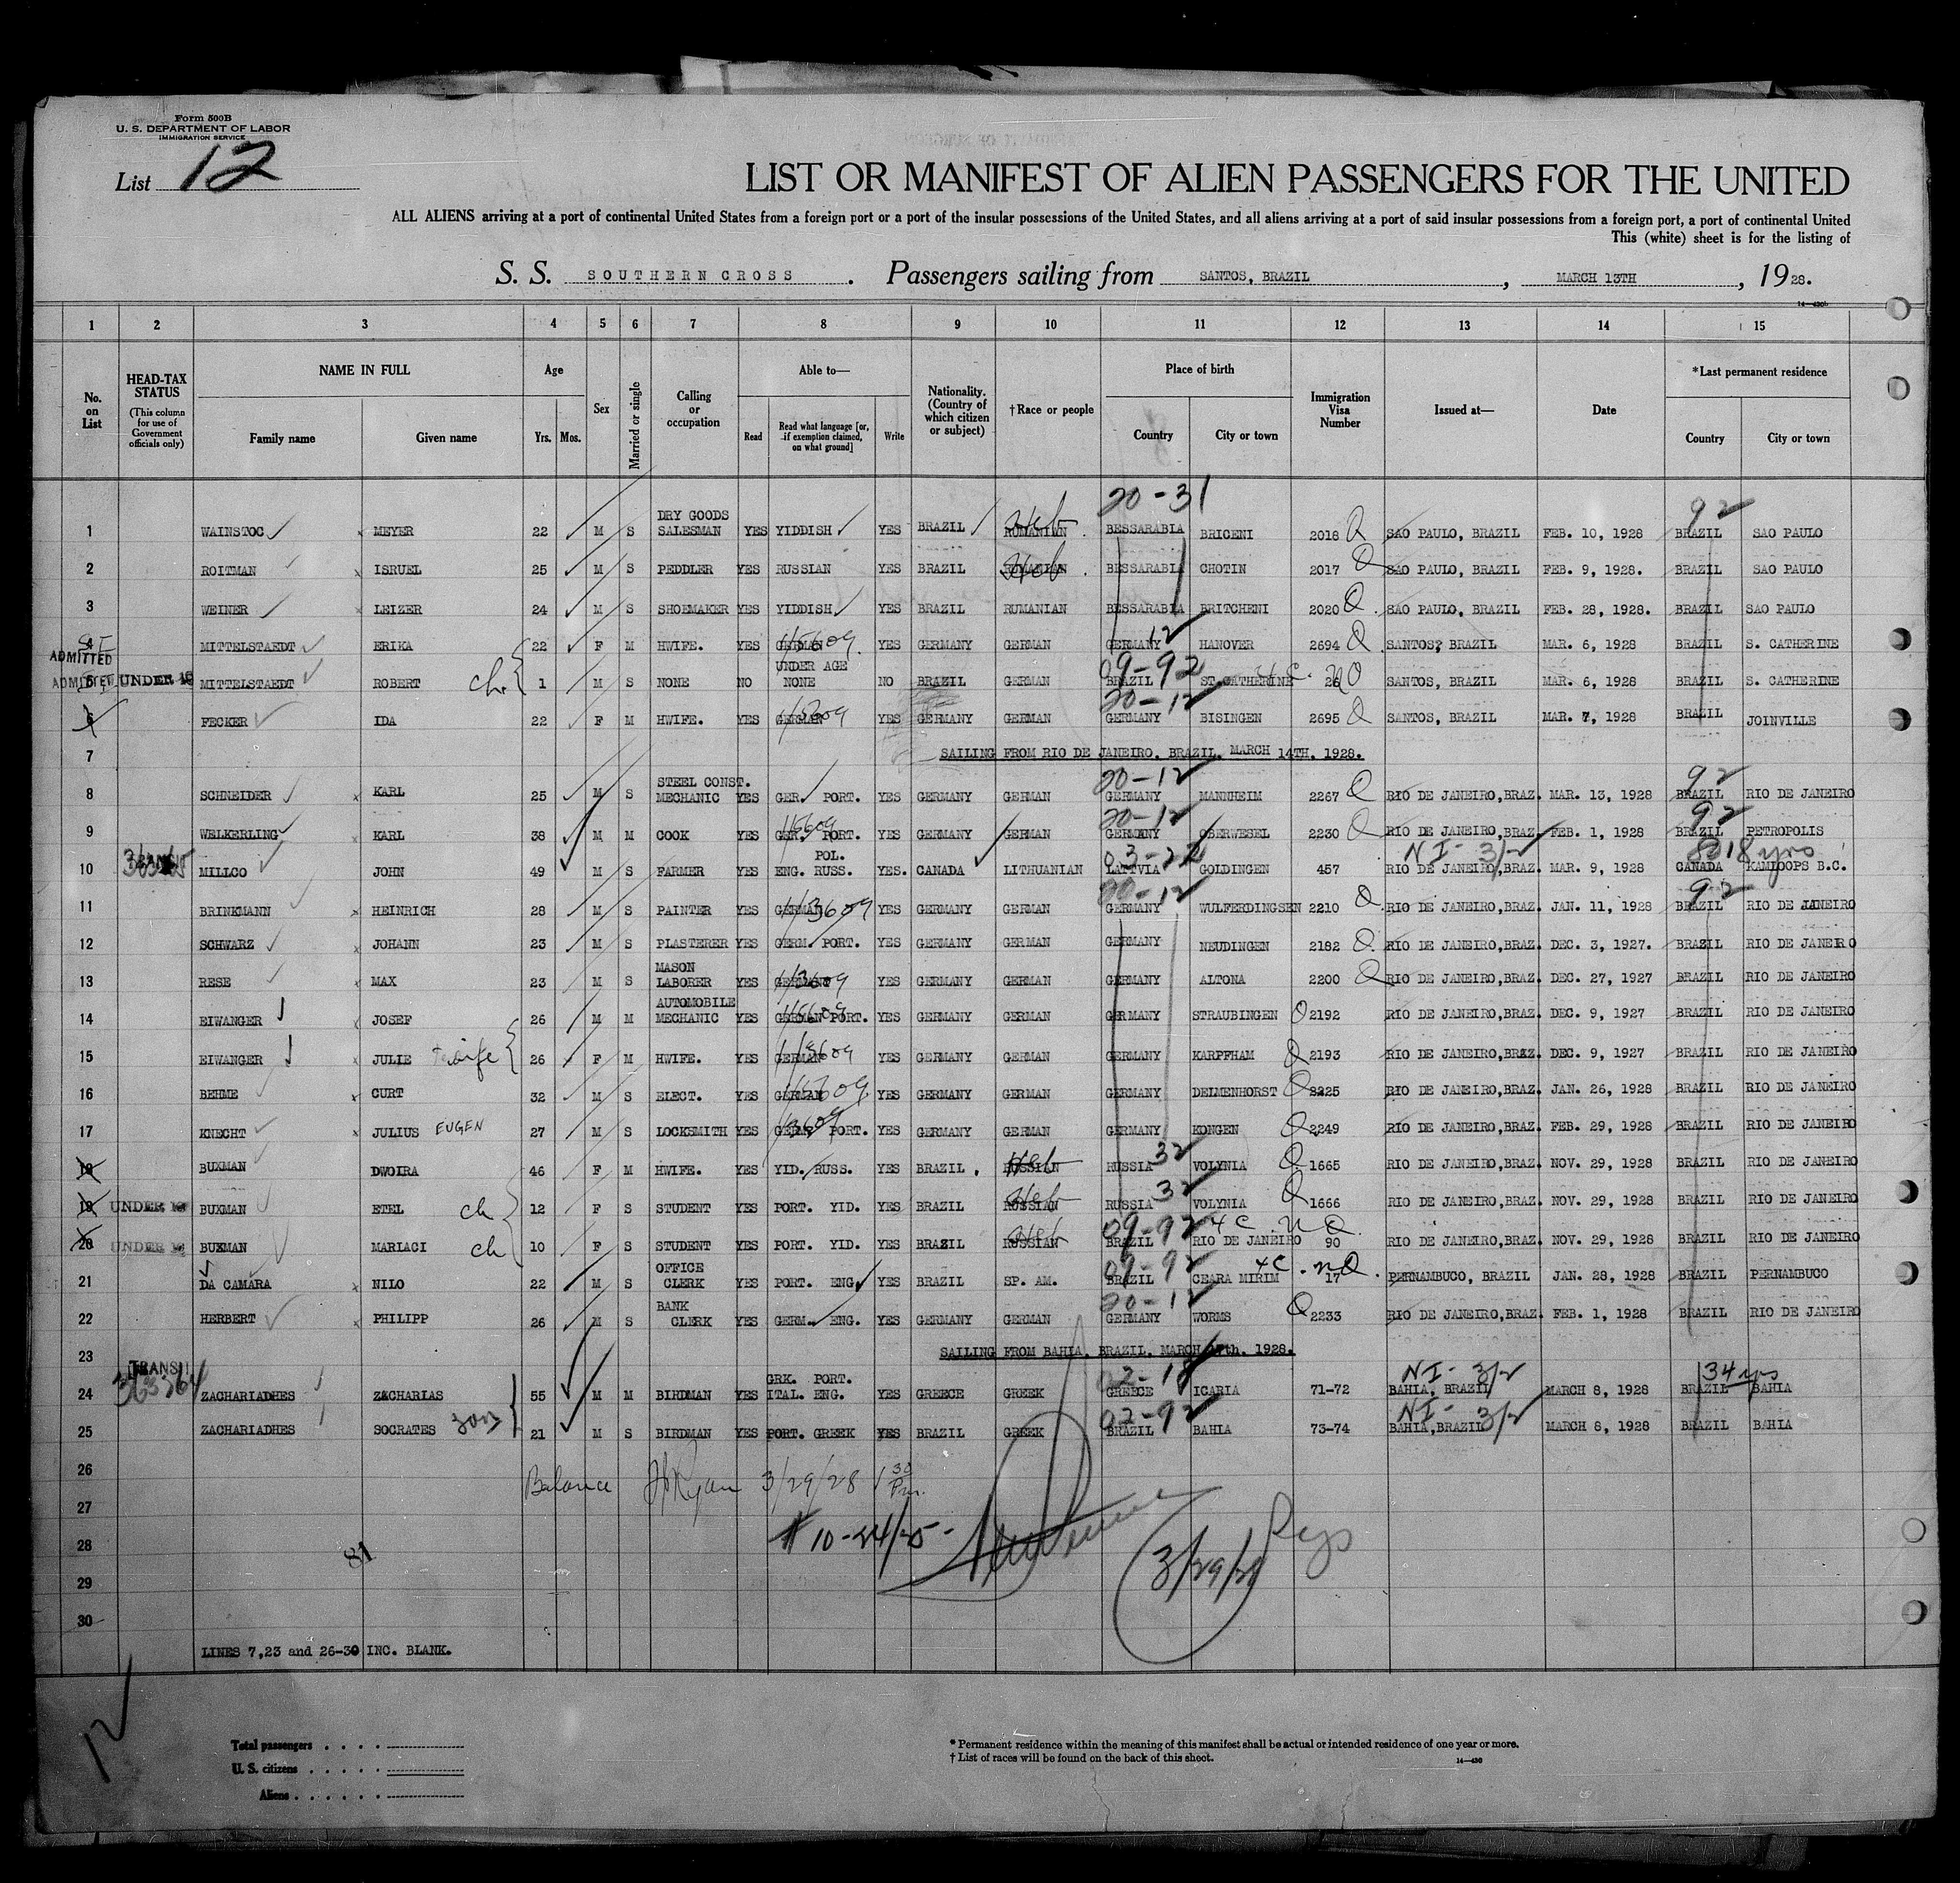 Form 500B
U. S. DEPARTMENT OF LABOR
IMMIGRATION SERVICE
List 12
LIST OR MANIFEST OF ALIEN PASSENGERS FOR THE UNITED
ALL ALIENS arriving at a port of continental United States from a foreign port or a port of the insular possessions of the United States, and all aliens arriving at a port of said insular possessions from a foreign port, a port of continental United
This (white) sheet is for the listing of
S. S. SOUTHERN CROSS . Passengers sailing from SANTOS, BRAZIL , MARCH 13TH , 1928.
1 2 3 4 5 6 7 8 9 10 11 12 13 14 15
No. on List
HEAD-TAX STATUS (This column for use of Government officials only)
NAME IN FULL
Family name Given name
Age
Yrs. Mos.
Sex
Married or single
Calling or occupation
Able to—
Read Read what language [or, if exemption claimed, on what ground] Write
Nationality. (Country of which citizen or subject)
†Race or people
Place of birth
Country City or town
Immigration Visa Number
Issued at—
Date
*Last permanent residence
Country City or town
20-31 92
1 WAINSTOC MEYER 22 M S DRY GOODS SALESMAN YES YIDDISH YES BRAZIL RUMANIAN Heb BESSARABIA BRICENI 2018 Q SAO PAULO, BRAZIL FEB. 10, 1928 BRAZIL SAO PAULO
2 ROITMAN ISRUEL 25 M S PEDDLER YES RUSSIAN YES BRAZIL Heb BESSARABIA CHOTIN 2017 Q SAO PAULO, BRAZIL FEB. 9, 1928. BRAZIL SAO PAULO
3 WEINER LEIZER 24 M S SHOEMAKER YES YIDDISH YES BRAZIL RUMANIAN BESSARABIA BRITCHENI 2020 Q SAO PAULO, BRAZIL FEB. 28, 1928. BRAZIL SAO PAULO
4 ADMITTED MITTELSTAEDT ERIKA 22 F M HWIFE. YES GERMAN YES GERMANY GERMAN GERMANY 12 HANOVER 2694 Q SANTOS, BRAZIL MAR. 6, 1928 BRAZIL S. CATHERINE
5 ADMITTED UNDER 16 MITTELSTAEDT ROBERT ch. 1 M S NONE NO UNDER AGE NONE NO BRAZIL GERMAN 09-92 BRAZIL ST. CATHERINE SANTOS, BRAZIL MAR. 6, 1928 BRAZIL S. CATHERINE
6 FECKER IDA 22 F M HWIFE. YES GERMAN YES GERMANY GERMAN 20-12 GERMANY BISINGEN 2695 Q SANTOS, BRAZIL MAR. 7, 1928 BRAZIL JOINVILLE
7 SAILING FROM RIO DE JANEIRO, BRAZIL, MARCH 14TH, 1928.
8 SCHNEIDER KARL 25 M S STEEL CONST. MECHANIC YES GER. PORT. YES GERMANY GERMAN 20-12 GERMANY MANNHEIM 2267 Q RIO DE JANEIRO,BRAZ. MAR. 13, 1928 92 BRAZIL RIO DE JANEIRO
9 WELKERLING KARL 38 M M COOK YES GER. PORT. YES GERMANY GERMAN 20-12 GERMANY OBERWESEL 2230 Q RIO DE JANEIRO,BRAZ. FEB. 1, 1928 92 BRAZIL PETROPOLIS
10 TRANSIT MILLCO JOHN 49 M S FARMER YES POL. ENG. RUSS. YES. CANADA LITHUANIAN LATTVIA GOLDINGEN 457 NI- 3/2 RIO DE JANEIRO,BRAZ. MAR. 9, 1928 18 yrs CANADA KAMLOOPS B.C.
11 BRINKMANN HEINRICH 28 M S PAINTER YES GERMAN YES GERMANY GERMAN 20-12 GERMANY WULFERDINGSEN 2210 Q RIO DE JANEIRO,BRAZ. JAN. 11, 1928 92 BRAZIL RIO DE JANEIRO
12 SCHWARZ JOHANN 23 M S PLASTERER YES GERM. PORT. YES GERMANY GERMAN GERMANY NEUDINGEN 2182 Q RIO DE JANEIRO,BRAZ. DEC. 3, 1927. BRAZIL RIO DE JANEIRO
13 RESE MAX 23 M S MASON LABORER YES GERMAN YES GERMANY GERMAN GERMANY ALTONA 2200 Q RIO DE JANEIRO,BRAZ. DEC. 27, 1927 BRAZIL RIO DE JANEIRO
14 EIWANGER JOSEF 26 M M AUTOMOBILE MECHANIC YES GERMAN PORT. YES GERMANY GERMAN GERMANY STRAUBINGEN Q 2192 RIO DE JANEIRO,BRAZ. DEC. 9, 1927 BRAZIL RIO DE JANEIRO
15 EIWANGER JULIE wife 26 F M HWIFE. YES GERMAN YES GERMANY GERMAN GERMANY KARPFHAM Q 2193 RIO DE JANEIRO,BRAZ. DEC. 9, 1927 BRAZIL RIO DE JANEIRO
16 BEHME CURT 32 M S ELECT. YES GERMAN YES GERMANY GERMAN GERMANY DELMENHORST Q 2225 RIO DE JANEIRO,BRAZ. JAN. 26, 1928 BRAZIL RIO DE JANEIRO
17 KNECHT JULIUS EUGEN 27 M S LOCKSMITH YES GERM. PORT. YES GERMANY GERMAN GERMANY KONGEN Q 2249 RIO DE JANEIRO,BRAZ. FEB. 29, 1928 BRAZIL RIO DE JANEIRO
18 BUXMAN DWOIRA 46 F M HWIFE. YES YID. RUSS. YES BRAZIL . RUSSIAN Heb RUSSIA 32 VOLYNIA Q 1665 RIO DE JANEIRO,BRAZ. NOV. 29, 1928 BRAZIL RIO DE JANEIRO
19 UNDER 16 BUXMAN ETEL ch 12 F S STUDENT YES PORT. YID. YES BRAZIL RUSSIAN Heb RUSSIA 32 VOLYNIA Q 1666 RIO DE JANEIRO,BRAZ. NOV. 29, 1928 BRAZIL RIO DE JANEIRO
20 UNDER 16 BUXMAN MARIACI ch 10 F S STUDENT YES PORT. YID. YES BRAZIL RUSSIAN Heb 09-92 BRAZIL 4C NQ RIO DE JANEIRO 90 RIO DE JANEIRO,BRAZ. NOV. 29, 1928 BRAZIL RIO DE JANEIRO
21 DA CAMARA NILO 22 M S OFFICE CLERK YES PORT. ENG. YES BRAZIL SP. AM. 09-92 BRAZIL CEARA MIRIM 4C - NQ. 17 PERNAMBUCO, BRAZIL JAN. 28, 1928 BRAZIL PERNAMBUCO
22 HERBERT PHILIPP 26 M S BANK CLERK YES GERM. ENG. YES GERMANY GERMAN 20-12 GERMANY WORMS Q 2233 RIO DE JANEIRO,BRAZ. FEB. 1, 1928 BRAZIL RIO DE JANEIRO
23 SAILING FROM BAHIA, BRAZIL, MARCH 17th, 1928.
24 TRANSIT ZACHARIADHES ZACHARIAS 55 M M BIRDMAN YES GRK. PORT. ITAL. ENG. YES GREECE GREEK GREECE ICARIA 71-72 NI- 3/2 BAHIA, BRAZIL MARCH 8, 1928 34 yrs BRAZIL BAHIA
25 ZACHARIADHES SOCRATES son 21 M S BIRDMAN YES PORT. GREEK YES BRAZIL GREEK 02-92 BRAZIL BAHIA 73-74 NI- 3/2 BAHIA,BRAZIL MARCH 8, 1928 BRAZIL BAHIA
26 Balance JPRyan 3/29/28 1 30 Pm.
27
28 81
29 3/29/28
30
LINES 7,23 and 26-30 INC. BLANK.
12
Total passengers . . . .
U. S. citizens . . . . .
Aliens . . . . . .
* Permanent residence within the meaning of this manifest shall be actual or intended residence of one year or more.
† List of races will be found on the back of this sheet.
14—430